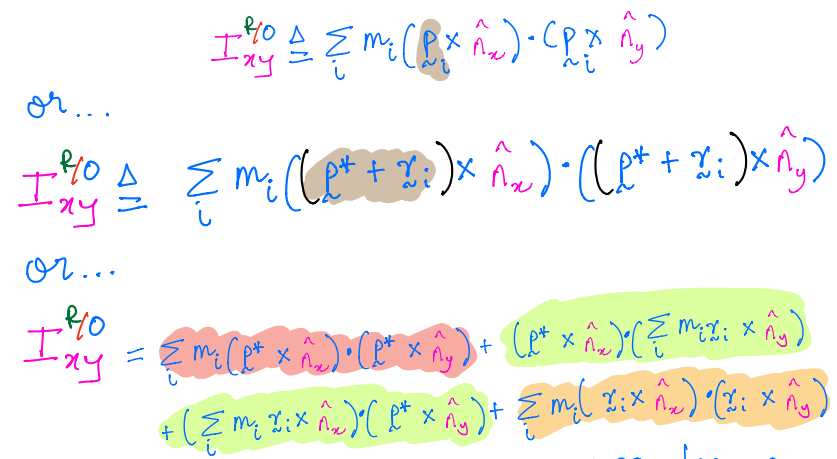 I_{xy}^{R/O} ≜ Σ_i m_i (p̰_i × n̂_x) · (p̰_i × n̂_y)
or...
I_{xy}^{R/O} ≜ Σ_i m_i ((p̰* + r̰_i) × n̂_x) · ((p̰* + r̰_i) × n̂_y)
or...
I_{xy}^{R/O} = Σ_i m_i (p̰* × n̂_x) · (p̰* × n̂_y) + (p̰* × n̂_x) · (Σ_i m_i r̰_i × n̂_y)
+ (Σ_i m_i r̰_i × n̂_x) · (p̰* × n̂_y) + Σ_i m_i (r̰_i × n̂_x) · (r̰_i × n̂_y)